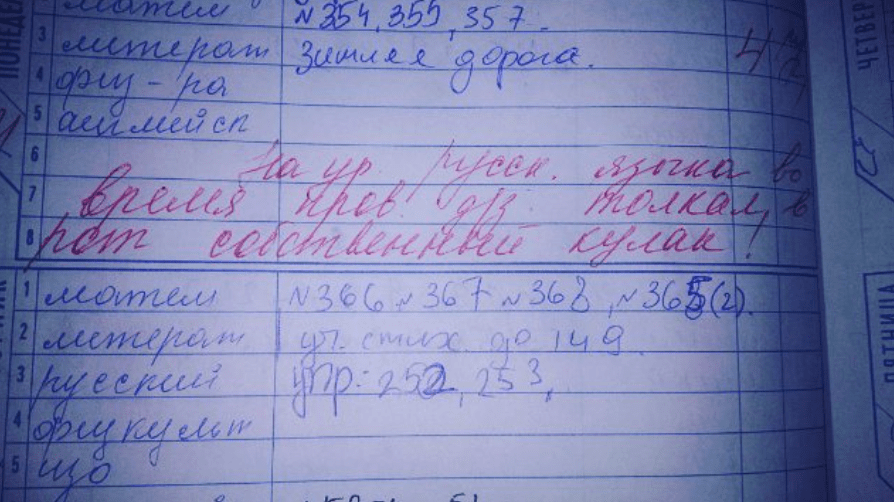 ПОНЕДЕЛ
матем №354, 355, 357.
3 литерат Зимняя дорога. 4
4 физ-ра
5 английск
6 На ур. русск. языка во
7 время пров. д/з толкал в
8 рот собственный кулак!
1 матем №366, №367 №368, №365(2).
2 литерат уч. стих. до 149.
3 русский упр: 252, 253,
4 физкульт
5 изо
ЧЕТВЕР
ПЯТНИЦА